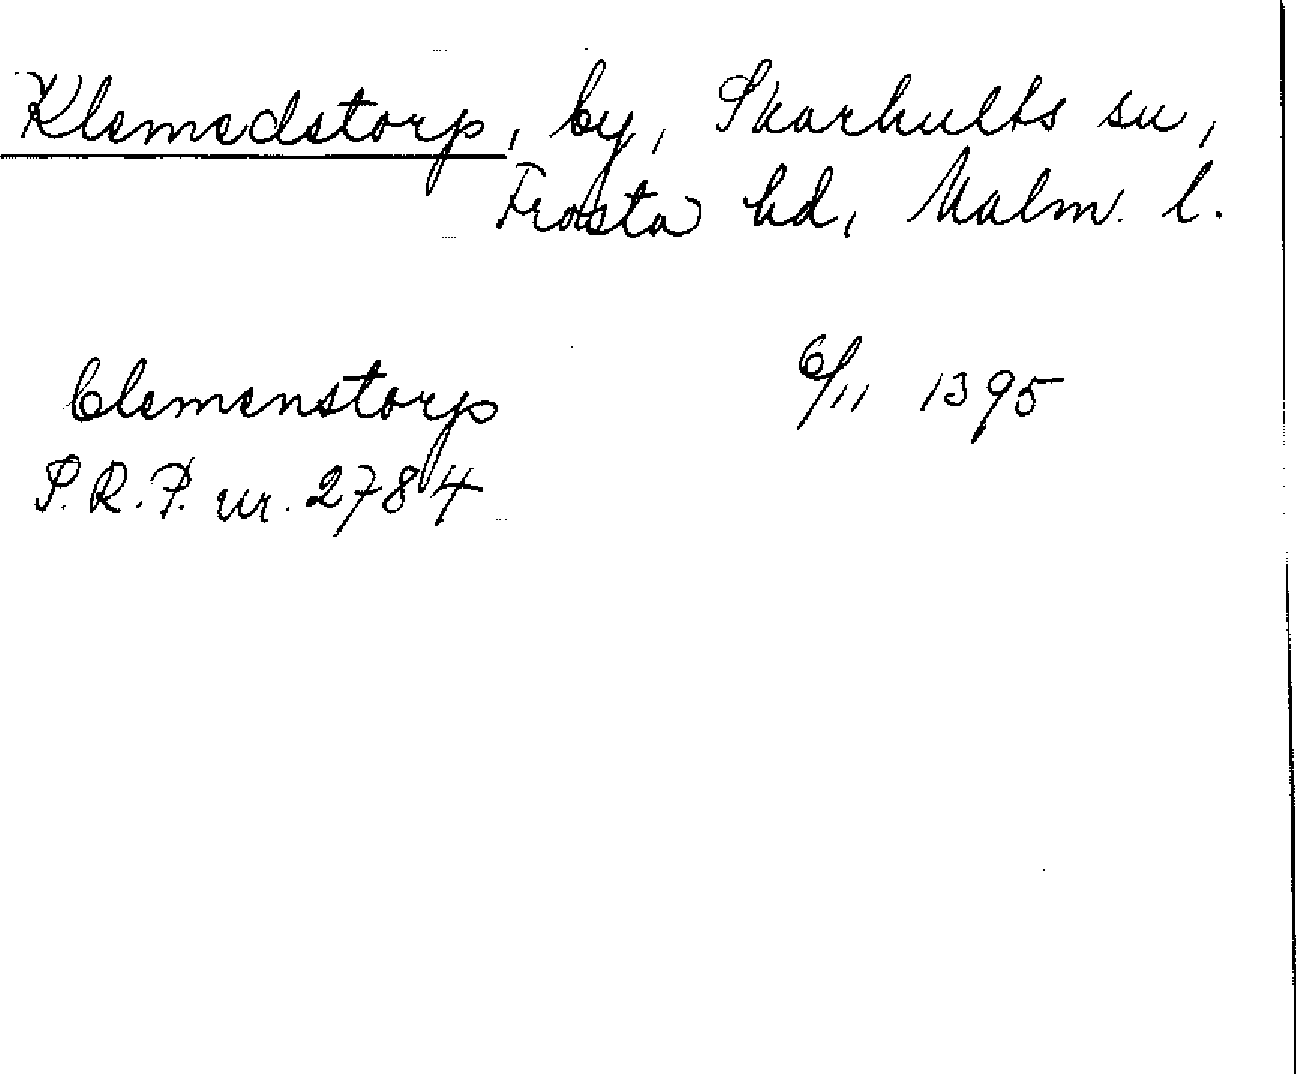 Klemedstorp, by, Skarhults sn,
Frosta hd, Malm. l.
Clemenstorp 6/11 1395
S.R.P. nr. 2784